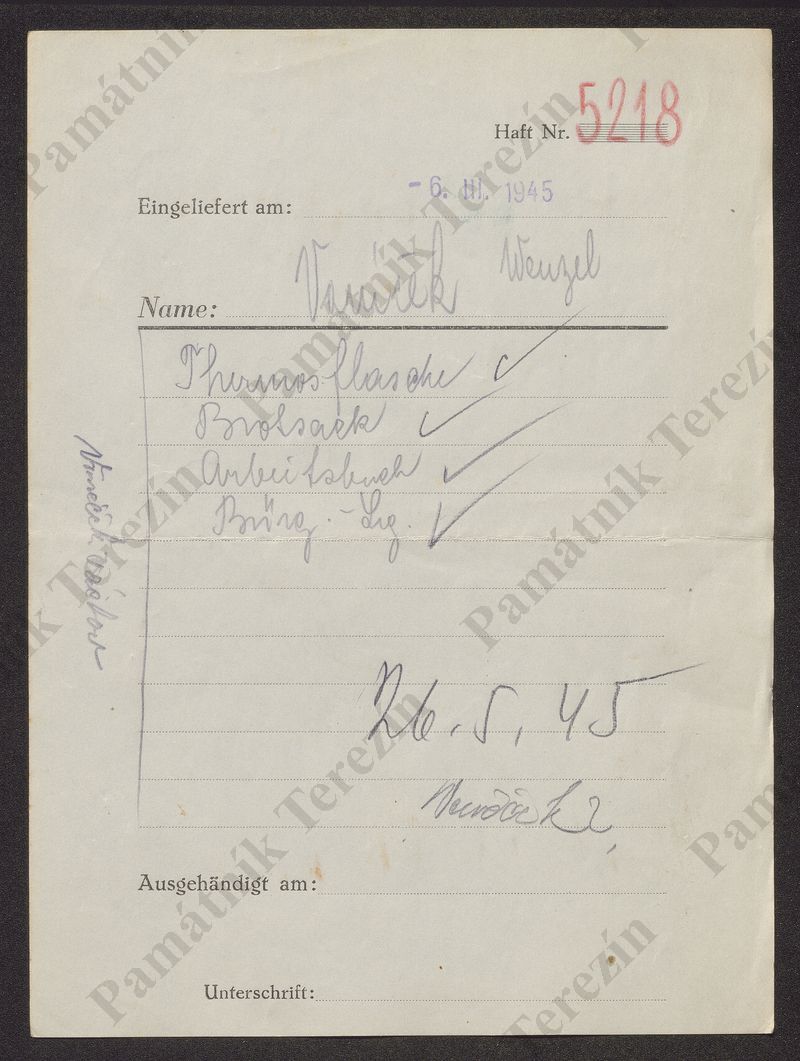 Haft Nr. 5218
Eingeliefert am: - 6. III. 1945
Name: Wenzel
Thermosflasche
Brotsack
Arbeitsbuch
Bürg. - Lg.
26. 5. 45
Ausgehändigt am:
Unterschrift:
Památník Terezín